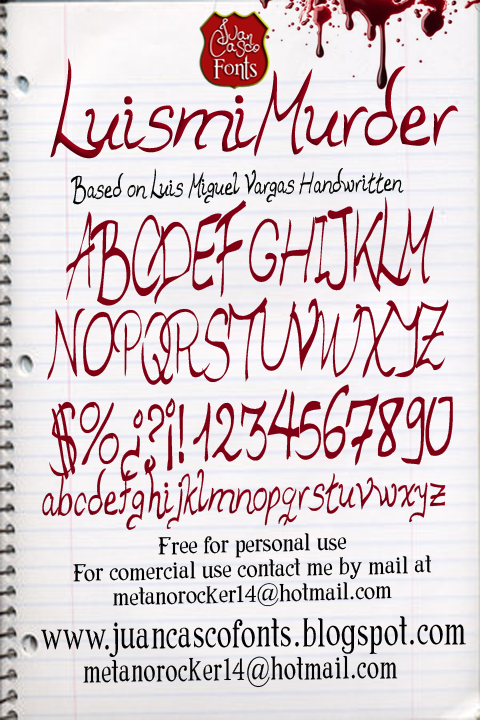 Juan
Casco
Fonts
Luismi Murder
Based on Luis Miguel Vargas Handwritten
ABCDEFGHIJKLM
NOPQRSTUVWXYZ
$%¿?¡!1234567890
abcdefghijklmnopqrstuvwxyz
Free for personal use
For comercial use contact me by mail at
metanorocker14@hotmail.com
www.juancascofonts.blogspot.com
metanorocker14@hotmail.com